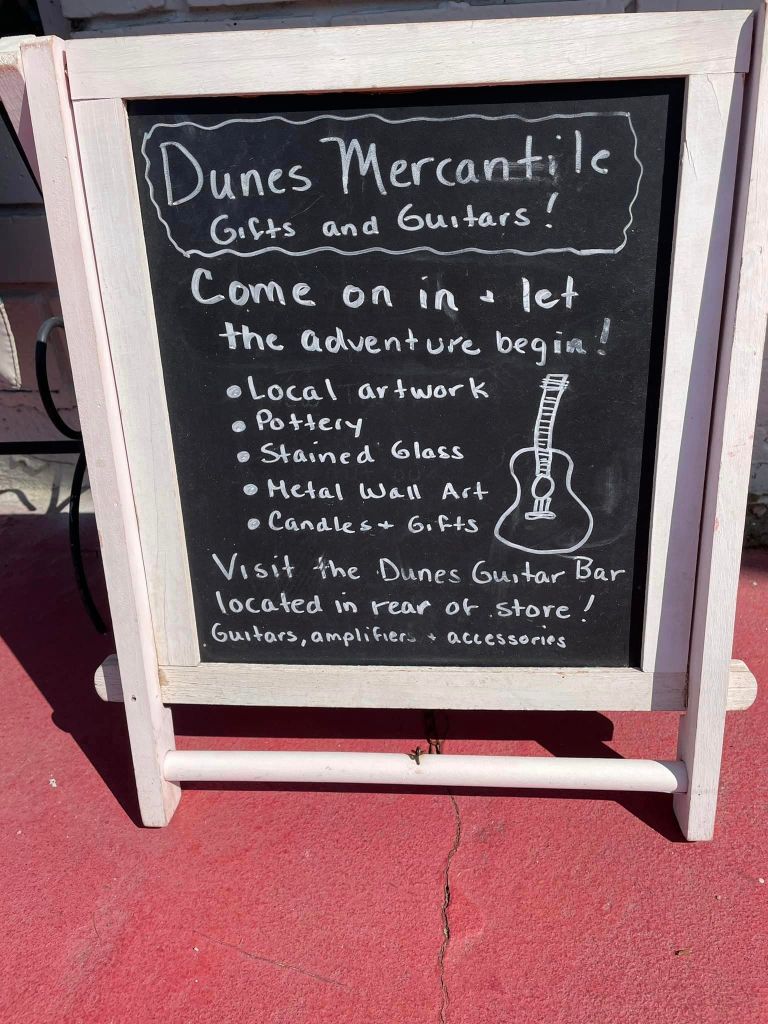 Dunes Mercantile
Gifts and Guitars!
Come on in + let
the adventure begin!
• Local artwork
• Pottery
• Stained Glass
• Metal Wall Art
• Candles + Gifts
Visit the Dunes Guitar Bar
located in rear of store!
Guitars, amplifiers + accessories